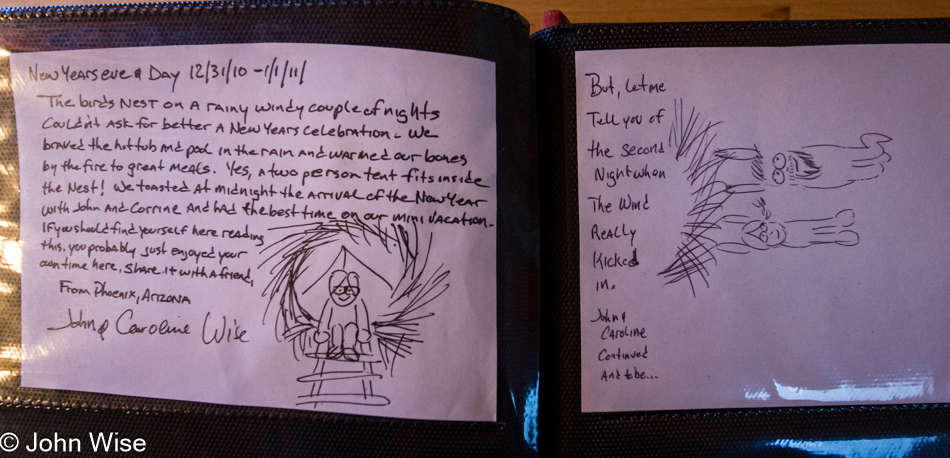 New Years eve & Day 12/31/10 - 1/1/11
The birds Nest on a rainy windy couple of nights
Couldn't ask for better a New Years Celebration. We
braved the hot tub and pool in the rain and warmed our bones
by the fire to great meals. Yes, a two person tent fits inside
the Nest! We toasted at midnight the arrival of the New Year
with John and Corrine and had the best time on our mini vacation.
If you should find yourself here reading
this, you probably just enjoyed your
own time here, share it with a friend,
From Phoenix, Arizona
John & Caroline Wise
But, let me
Tell you of
the second
Night when
The Wind
Really
Kicked
in.
John &
Caroline
Continued
And to be...
© John Wise